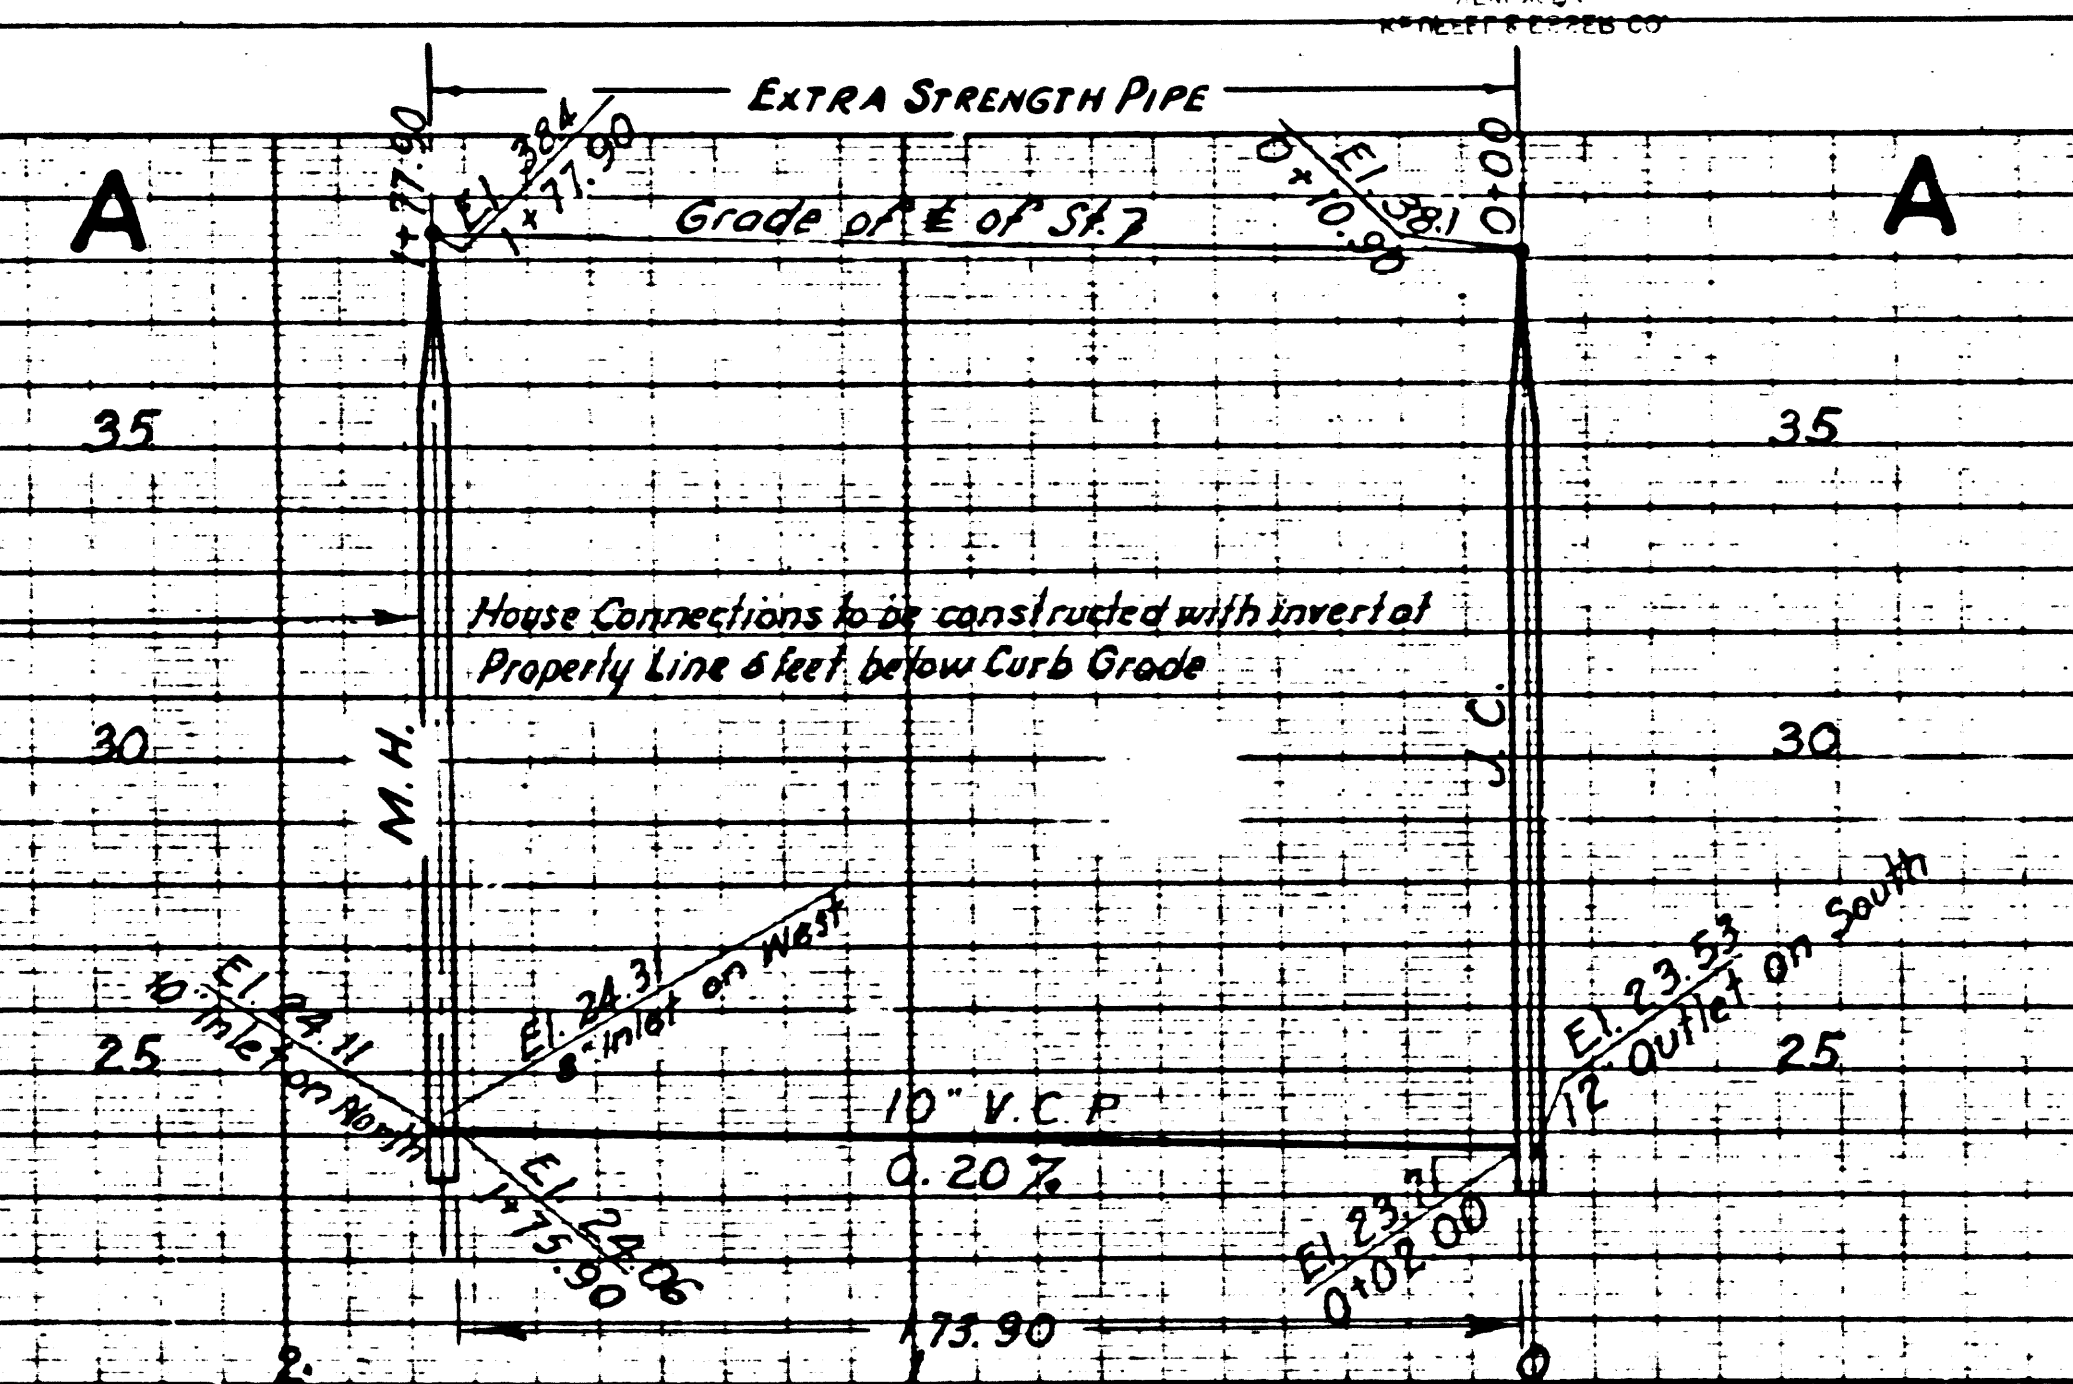 EXTRA STRENGTH PIPE
1+77.90
El. 38.4
1+77.90
El. 38.1
0+10.90
0+00
A
A
Grade of ℄ of St.
35
35
House Connections to be constructed with invert at
Property Line 6 feet below Curb Grade
30
M. H.
J. C.
30
El. 24.11
Inlet on North
El. 24.31
8" Inlet on West
El. 23.53
12" Outlet on South
25
25
10" V. C. P.
0.20 %
El. 24.06
1+75.90
El. 23.71
0+02.00
173.90
2
1
0